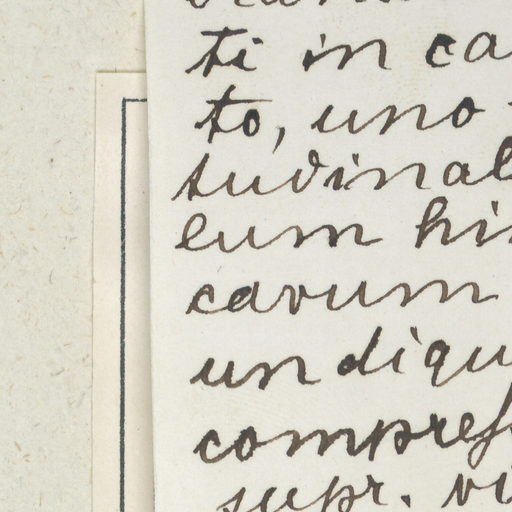 ti in ca
to, uno
tudinal
leum hi
cavum
undiqu
compress
supr. vi